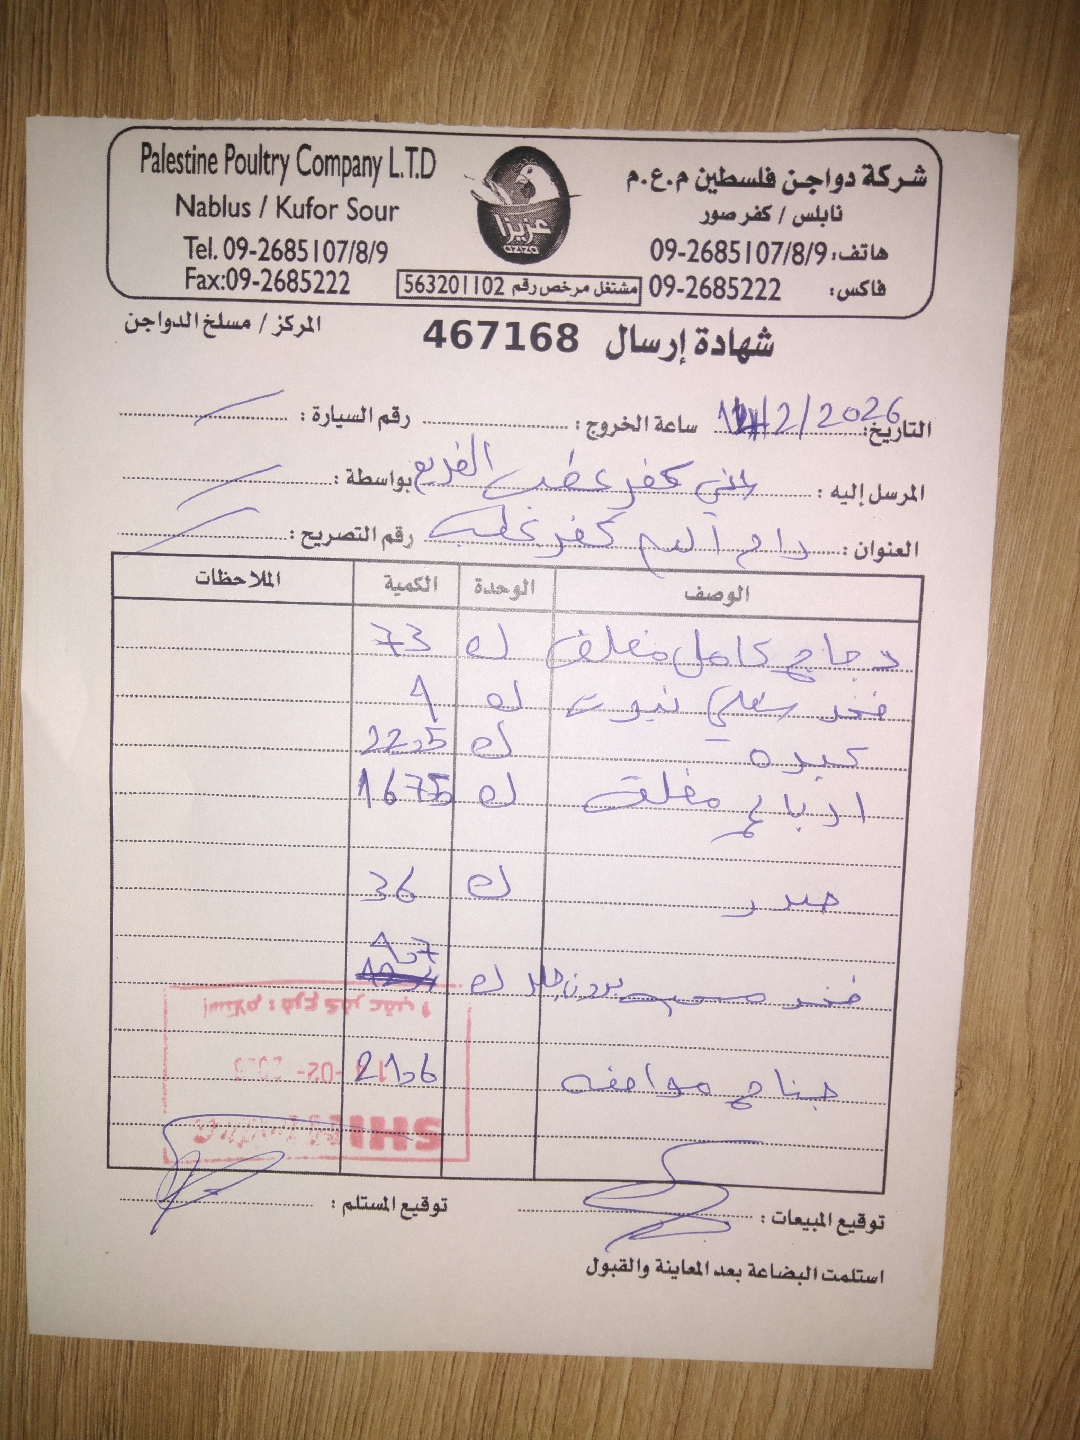 Palestine Poultry Company L.T.D
Nablus / Kufor Sour
Tel. 09-2685107/8/9
Fax:09-2685222
عزيزا
azıza
شركة دواجن فلسطين م.ع.م
نابلس / كفر صور
هاتف: 09-2685107/8/9
فاكس: 09-2685222
مشتغل مرخص رقم 563201102
شهادة إرسال 467168
المركز / مسلخ الدواجن
التاريخ: /2/2026 ساعة الخروج: رقم السيارة:
المرسل إليه: كفر عقب بواسطة:
العنوان: رام الله كفر عقب رقم التصريح:
الوصف الوحدة الكمية الملاحظات
دجاج كامل مغلف ك 73
فخذ نيوت ك 9
كبده ك 22.5
ارباع مغلف ك 1675
صدر ك 36
فخذ مسحب بدون جلد ك 9.7
جناح مواصفه 21.6
استلام : فرع كفر عقب
توقيع المبيعات: توقيع المستلم:
استلمت البضاعة بعد المعاينة والقبول